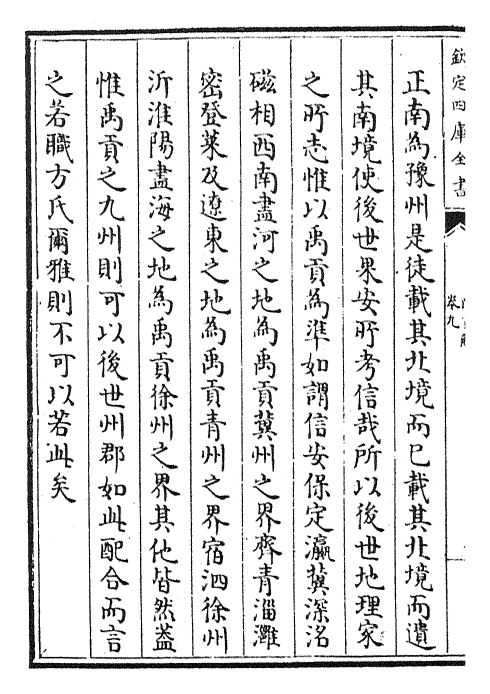 欽定四庫全書
卷九
正南為豫州是徒載其北境而已載其北境而遺
其南境使後世果安所考信哉所以後世地理家
之所志惟以禹貢為準如謂信安保定瀛冀深洺
磁相西南盡河之地為禹貢冀州之界齊青淄濰
密登萊及遼東之地為禹貢青州之界宿泗徐州
沂淮陽盡海之地為禹貢徐州之界其他皆然蓋
惟禹貢之九州則可以後世州郡如此配合而言
之若職方氏爾雅則不可以若此矣